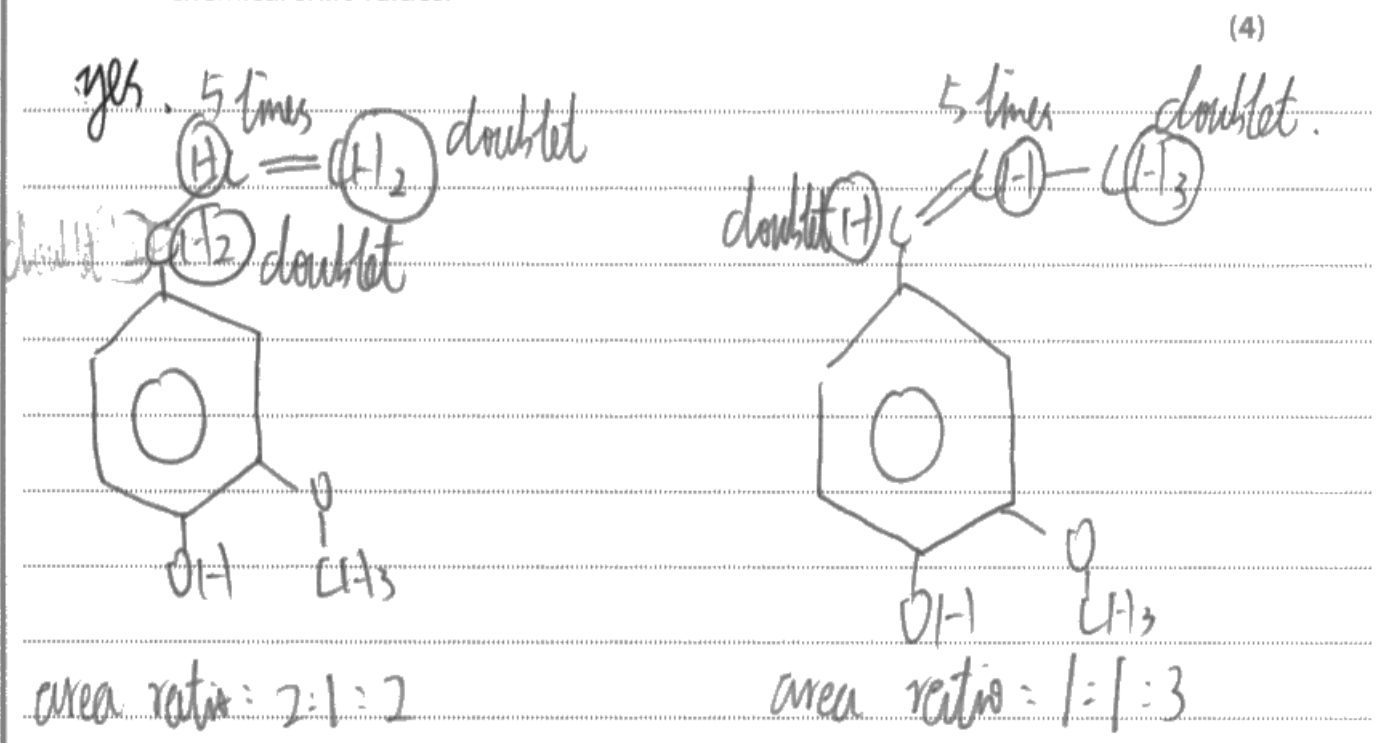 (4)
yes. 5 times
HC = CH2 doublet
CH2 doublet
OH
O
CH3
area ratio: 2:1:2
5 times doublet.
doublet H C = CH - CH3
OH
O
CH3
area ratio = 1:1:3